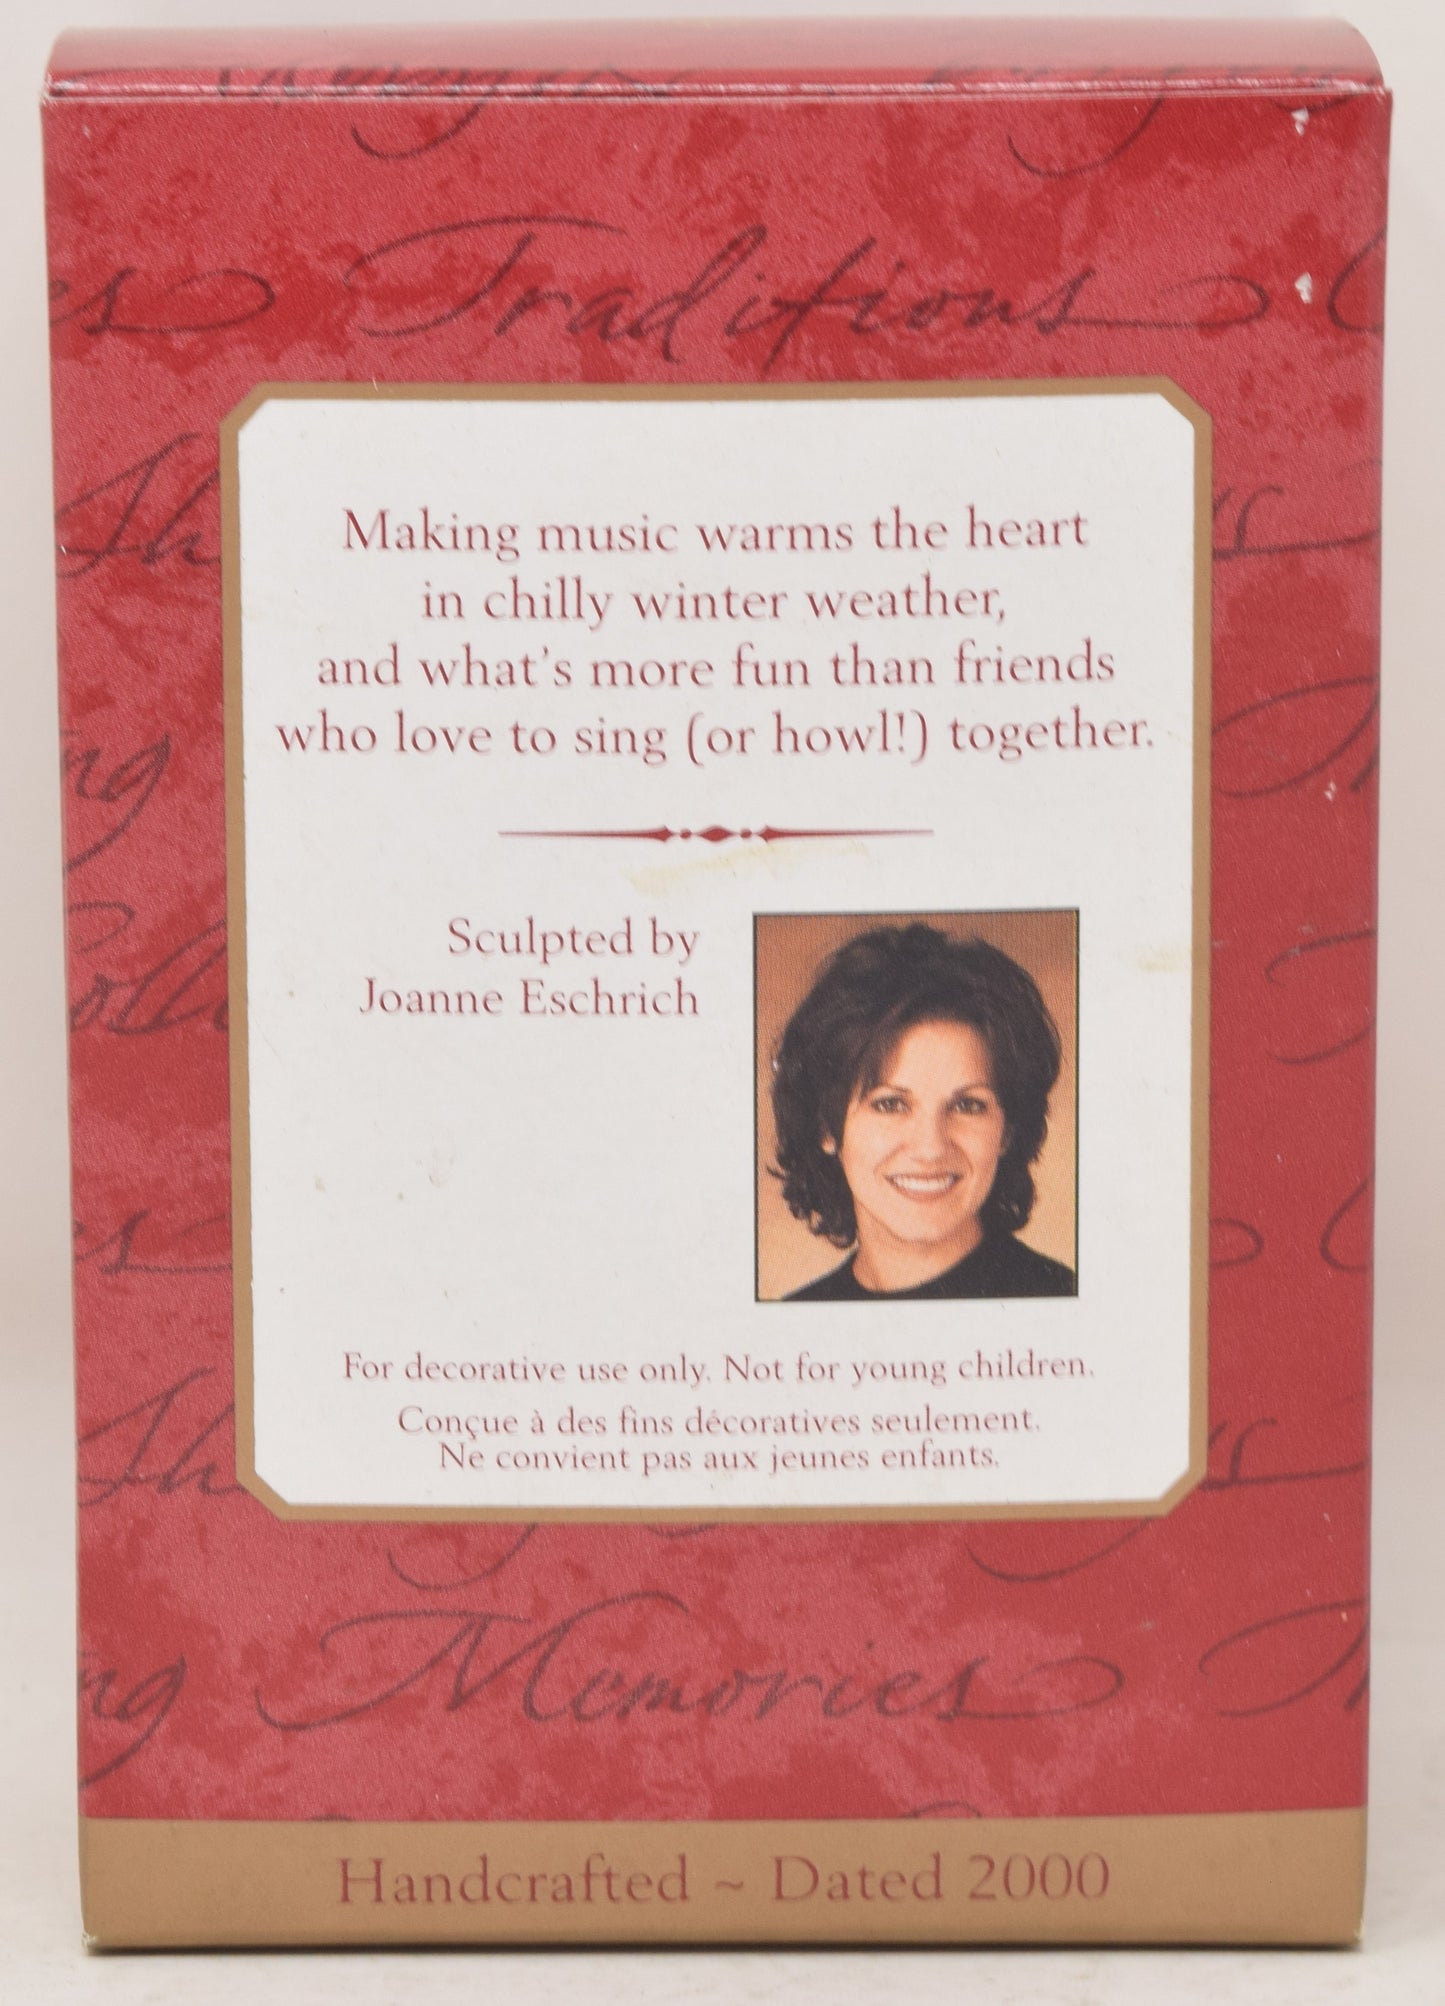 Traditions
Making music warms the heart
in chilly winter weather,
and what's more fun than friends
who love to sing (or howl!) together.
Sculpted by
Joanne Eschrich
For decorative use only. Not for young children.
Conçue à des fins décoratives seulement.
Ne convient pas aux jeunes enfants.
Memories
Handcrafted ~ Dated 2000